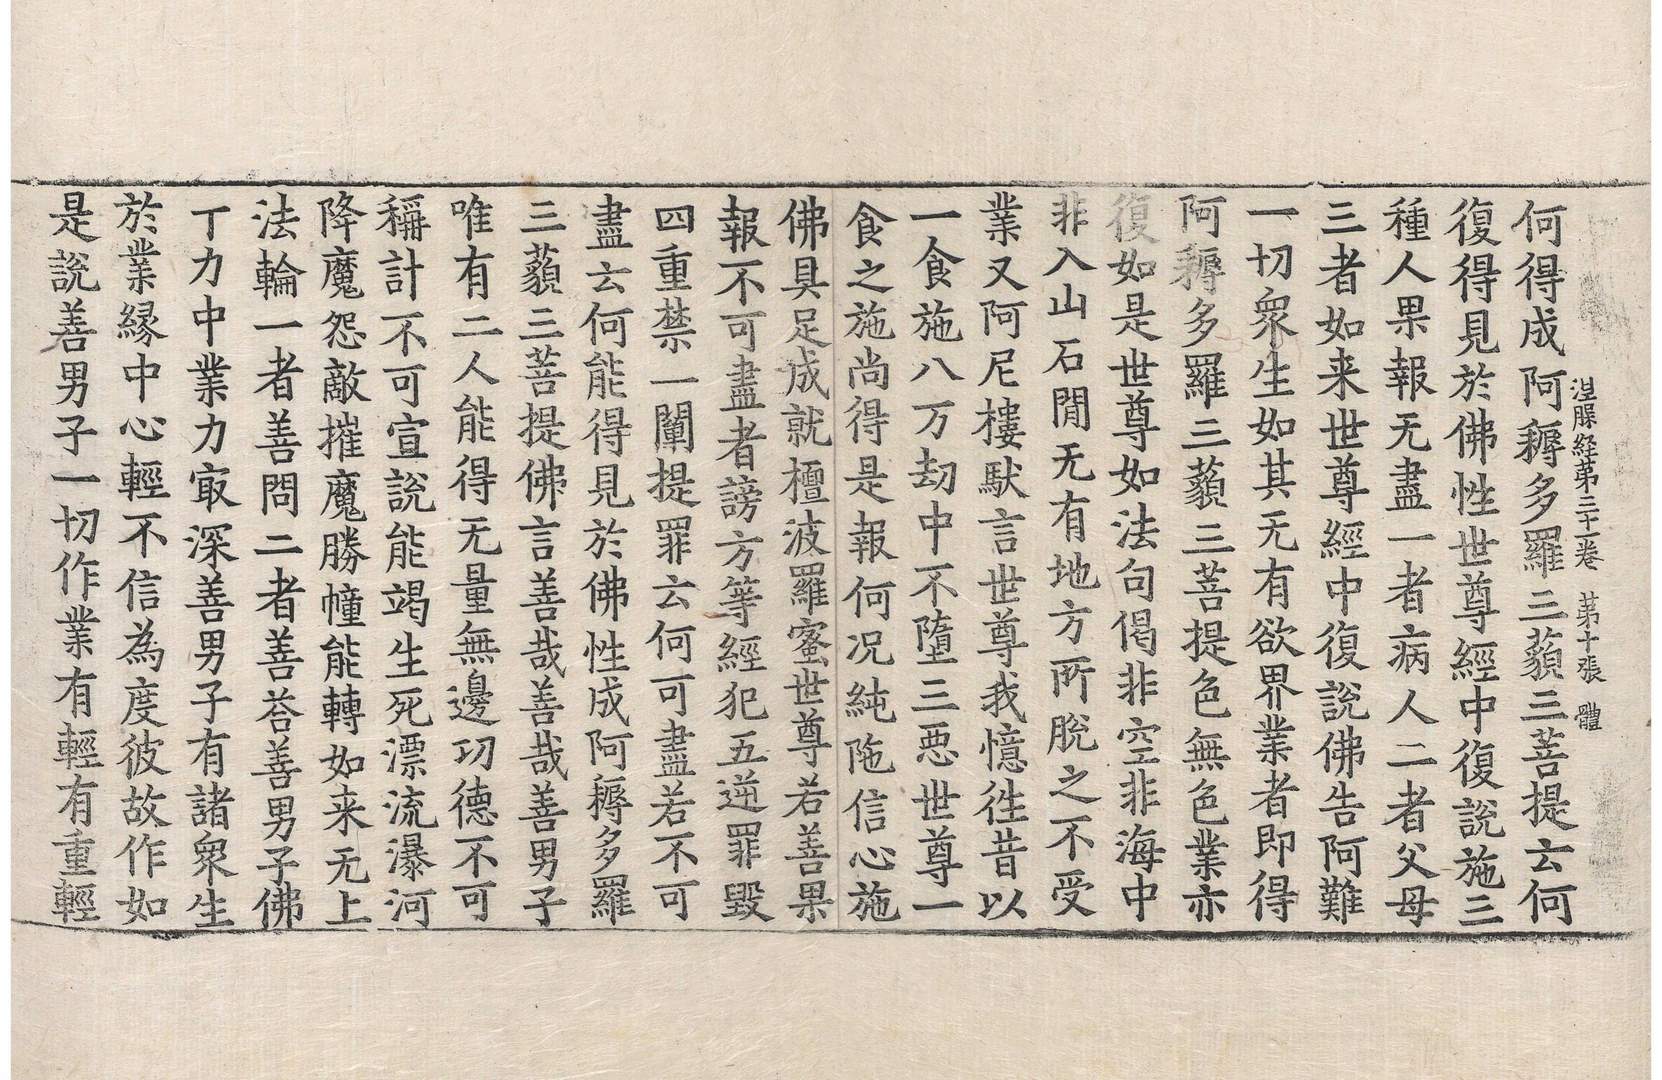 涅槃経第三十一卷　第十張　體
何得成阿耨多羅三藐三菩提云何
復得見於佛性世尊經中復說施三
種人果報无盡一者病人二者父母
三者如来世尊經中復說佛告阿難
一切衆生如其无有欲界業者即得
阿耨多羅三藐三菩提色無色業亦
復如是世尊如法句偈非空非海中
非入山石間无有地方所脫之不受
業又阿尼樓馱言世尊我憶徃昔以
一食施八万劫中不墮三惡世尊一
食之施尚得是報何况純陁信心施
佛具足成就檀波羅蜜世尊若善果
報不可盡者謗方等經犯五逆罪毀
四重禁一闡提罪云何可盡若不可
盡云何能得見於佛性成阿耨多羅
三藐三菩提佛言善哉善哉善男子
唯有二人能得无量無邊功德不可
稱計不可宣說能竭生死漂流瀑河
降魔怨敵摧魔勝幢能轉如来无上
法輪一者善問二者善荅善男子佛
十力中業力㝡深善男子有諸衆生
於業緣中心輕不信為度彼故作如
是說善男子一切作業有輕有重輕